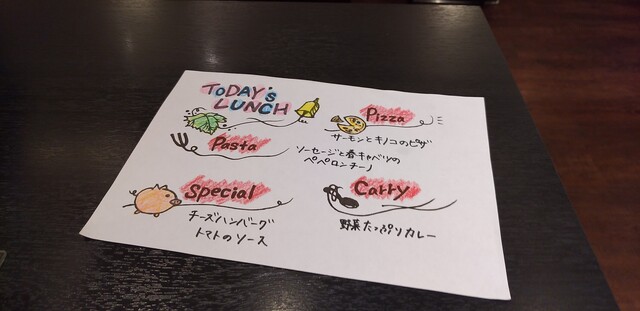 ToDAY's
LUNCH
Pizza
サーモンとキノコのピザ
Pasta
ソーセージと春キャベツの
ペペロンチーノ
Special
チーズハンバーグ
トマトのソース
Carry
野菜たっぷりカレー